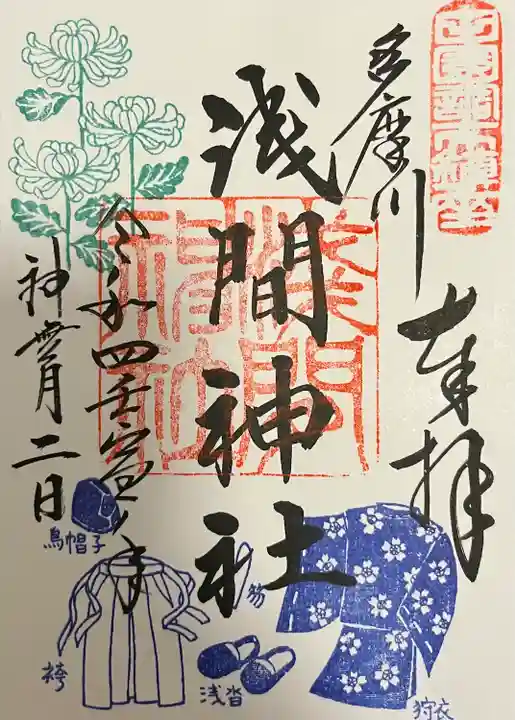 奉拝
多摩川
浅間神社
令和四壬寅年
神無月二日
烏帽子
袴
笏
浅沓
狩衣